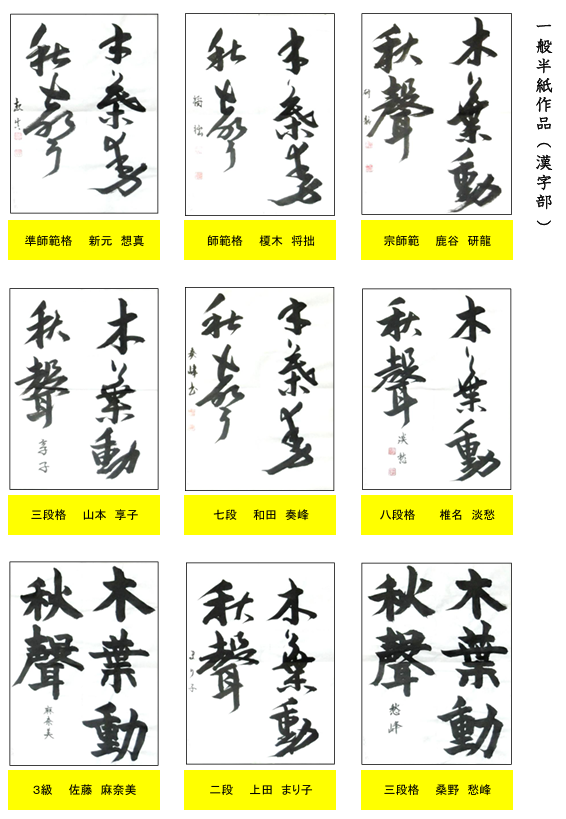 一般半紙作品（漢字部）
木葉動
秋聲
研龍
宗師範 鹿谷 研龍
木葉動
秋聲
師範格 榎木 将拙
木葉動
秋聲
準師範格 新元 想真
木葉動
秋聲
淡愁
八段格 椎名 淡愁
木葉動
秋聲
奏峰書
七段 和田 奏峰
木葉動
秋聲
享子
三段格 山本 享子
木葉動
秋聲
愁峰
三段格 桑野 愁峰
木葉動
秋聲
まり子
二段 上田 まり子
木葉動
秋聲
麻奈美
３級 佐藤 麻奈美